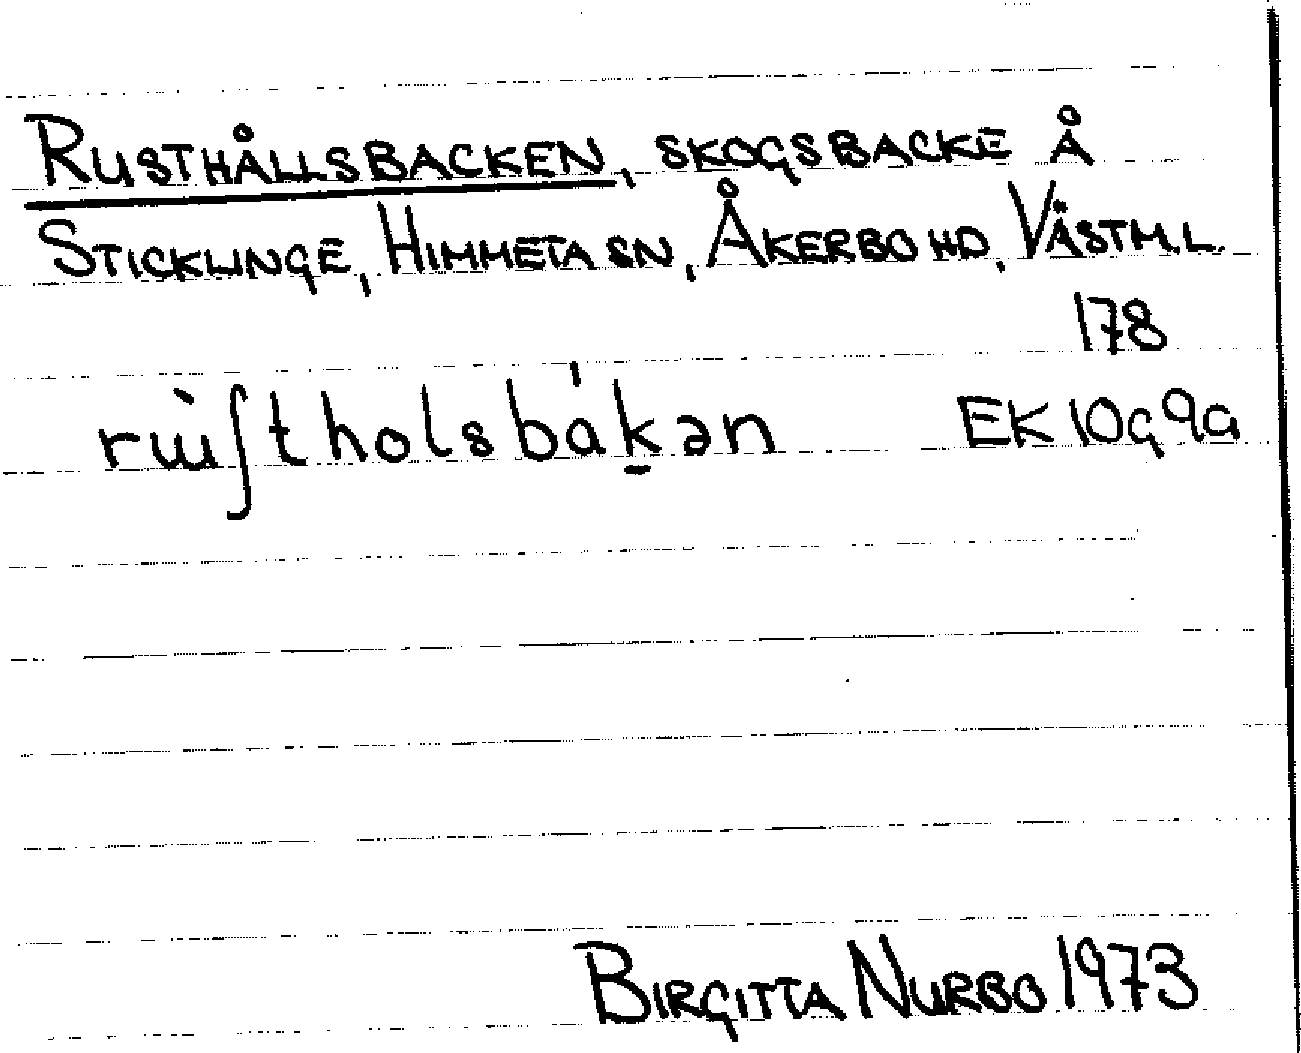 RUSTHÅLLSBACKEN, SKOGSBACKE Å
STICKLINGE, HIMMETA SN, ÅKERBO HD, VÄSTM.L.
178
rɯ̀ſtholsbák̠ən EK 10g9a
BIRGITTA NURBO 1973